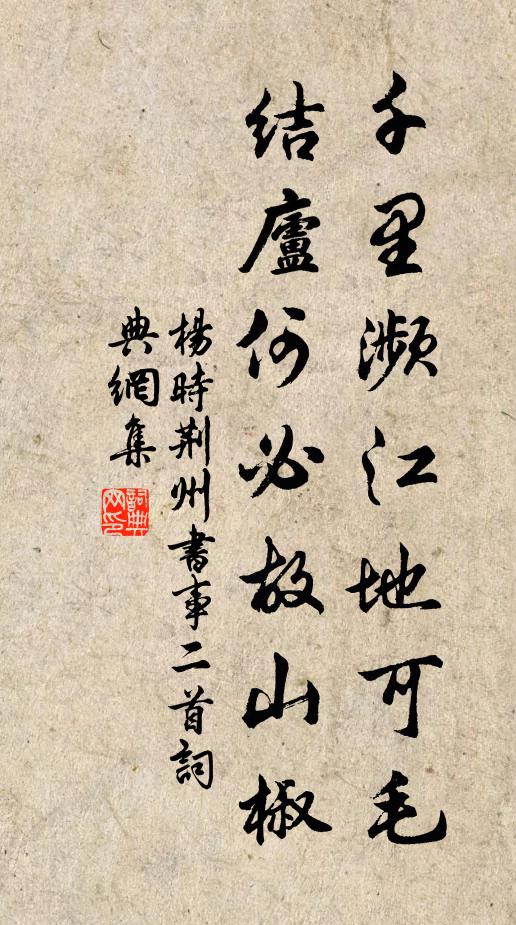 千里濒江地可毛
結廬何必故山椒
楊時荆州書事二首詞
典網集
詞典网印